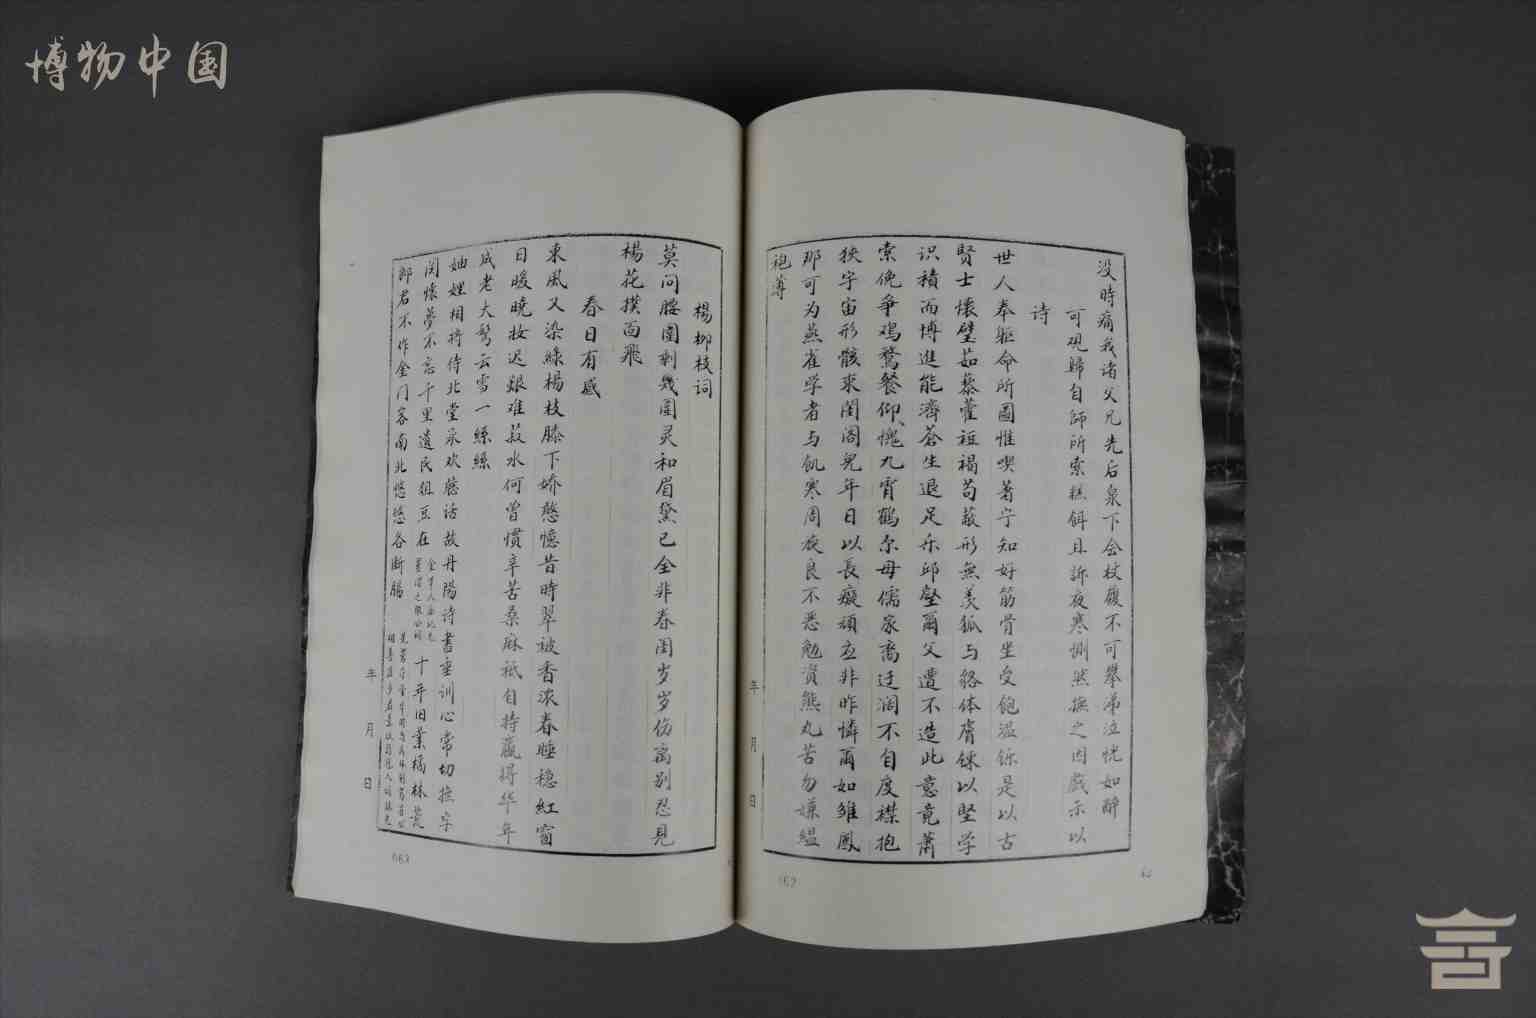 博物中国
没時痛我诸父兄先后泉下会杖履不可攀涕泣恍如醉
可砚歸自師所索糕餌且訴夜寒惻然撫之因戲示以
诗
世人奉軀命所图惟喫著宁知好筋骨坐受飽温铄是以古
賢士懷璧茹藜藿裋褐苟蔽形無羡狐与貉体膚鍊以堅学
识積而博進能濟蒼生退足乐邱壑爾父遭不造此意竟蕭
索俛争鸡鶩餐仰愧九霄鶴尔母儒家裔迂阔不自度襟抱
狹宇宙形骸求闺阁兒年日以長癡頑应非昨憐爾如雏鳳
那可为燕雀学者与飢寒周旋良不恶勉資熊丸苦勿嫌緼
袍薄
年 月 日
662
楊柳枝词
莫问腰圍剩幾圍灵和眉黛已全非春闺岁岁伤离别忍見
楊花撲面飛
春日有感
東風又染綠楊枝膝下娇憨憶昔時翠被香浓春睡穏紅窗
日暖晓妝迟艱难菽水何曾慣辛苦桑麻祗自持赢得华年
成老大鬂云雪一絲絲
妯娌相将侍北堂承欢聽话故丹陽诗書垂训心常切撫字
関懷夢不忘千里遺民俎豆在
十年旧業橘林荒
郎君不作金门客南北悠悠各断腸
年 月 日
663